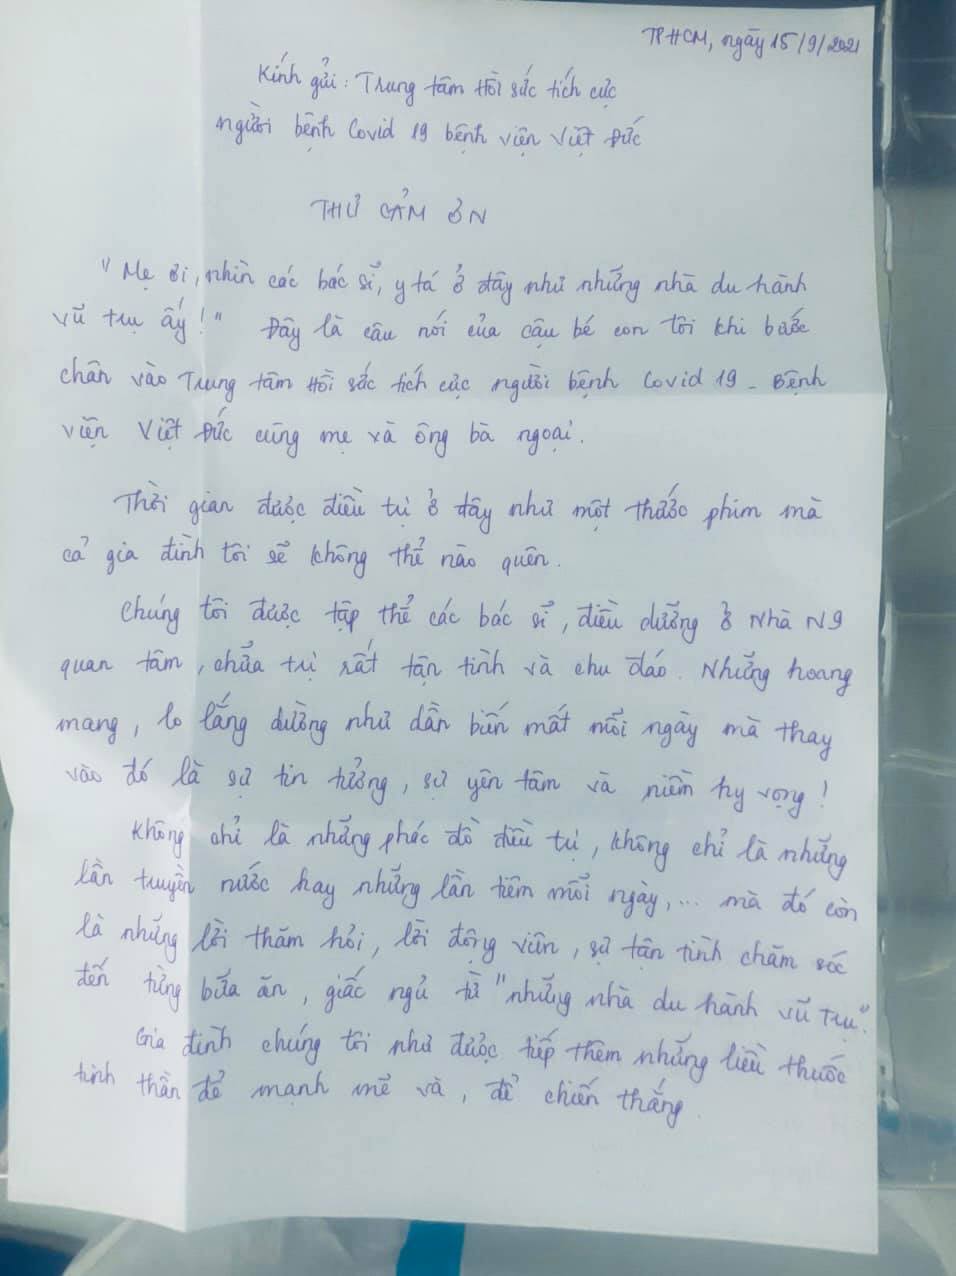 TPHCM, ngày 15/9/2021
Kính gửi: Trung tâm Hồi sức tích cực
người bệnh Covid 19 bệnh viện Việt Đức
THƯ CẢM ƠN
"Mẹ ơi, nhìn các bác sĩ, y tá ở đây như những nhà du hành
vũ trụ ấy!" Đây là câu nói của cậu bé con tôi khi bước
chân vào Trung tâm Hồi sức tích cực người bệnh Covid 19 - Bệnh
viện Việt Đức cùng mẹ và ông bà ngoại.
Thời gian được điều trị ở đây như một thước phim mà
cả gia đình tôi sẽ không thể nào quên.
Chúng tôi được tập thể các bác sĩ, điều dưỡng ở Nhà N9
quan tâm, chữa trị rất tận tình và chu đáo. Những hoang
mang, lo lắng dường như dần biến mất mỗi ngày mà thay
vào đó là sự tin tưởng, sự yên tâm và niềm hy vọng!
Không chỉ là những phác đồ điều trị, không chỉ là những
lần truyền nước hay những lần tiêm mỗi ngày,... mà đó còn
là những lời thăm hỏi, lời động viên, sự tận tình chăm sóc
đến từng bữa ăn, giấc ngủ từ "những nhà du hành vũ trụ".
Gia đình chúng tôi như được tiếp thêm những liều thuốc
tinh thần để mạnh mẽ và, để chiến thắng.